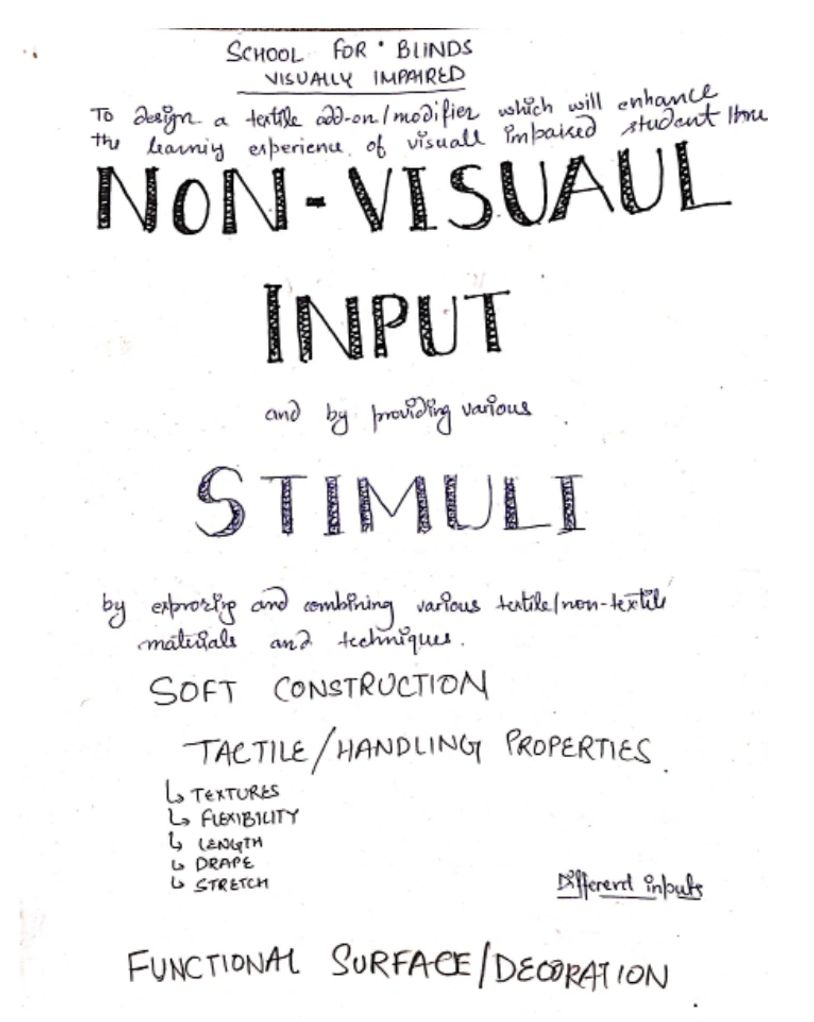 SCHOOL FOR BLINDS
VISUALLY IMPAIRED
To design a textile add-on/modifier which will enhance
the learning experience of visuall impaired student thru
NON-VISUAUL
INPUT
and by providing various
STIMULI
by exproring and combining various textile/non-textile
materials and techniques.
SOFT CONSTRUCTION
TACTILE/HANDLING PROPERTIES
↳ TEXTURES
↳ FLEXIBILITY
↳ LENGTH
↳ DRAPE
↳ STRETCH
Different inputs
FUNCTIONAL SURFACE/DECORATION